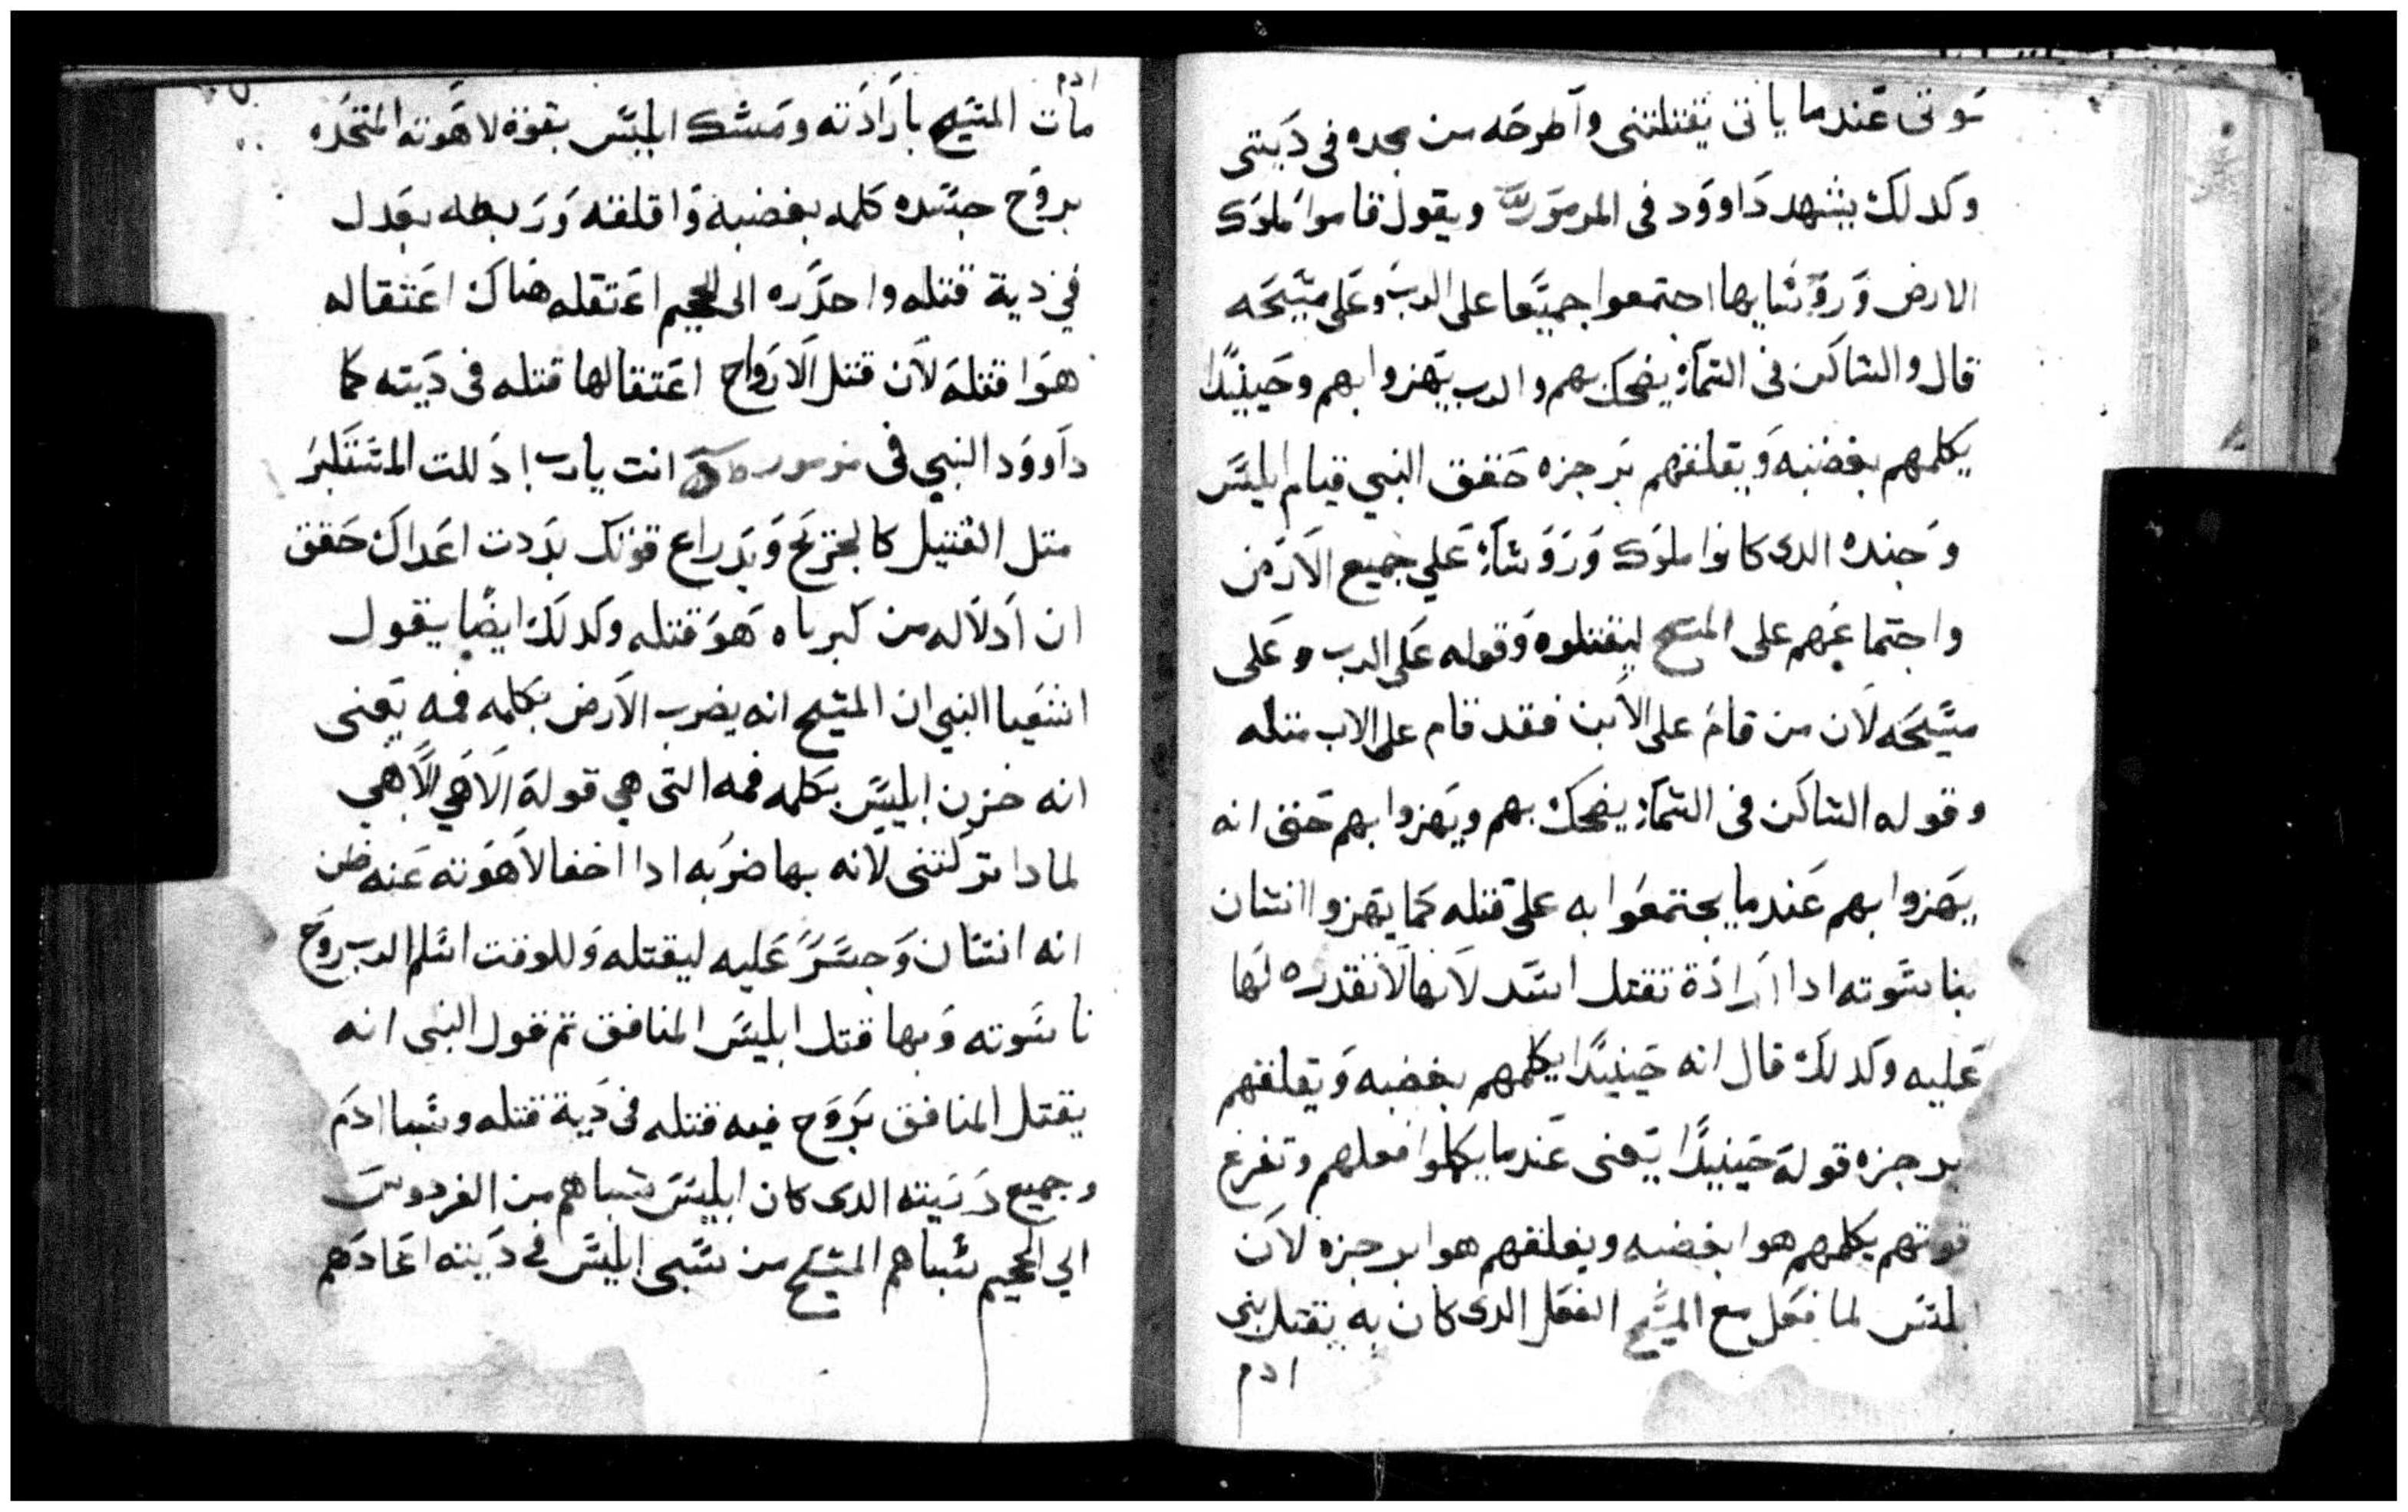 توتى عند ما ياتى يقتلنى واطرحه من مجده فى ديتى
وكدلك يشهد داوود فى المزمور ويقول قاموا ملوك
الارض وروسايها اجتمعوا جميعا على الرب وعلى مسيحه
قال والساكن فى السماء يضحك بهم والرب يهزوا بهم وحينيدا
يكلمهم بغضبه ويقلقهم برجزه حقق النبي قيام ابليس
وجنده الدى كانوا ملوك وروساء علي جميع الارض
واجتماعهم على المسيح ليقتلوه وقوله على الرب وعلى
مسيحه لان من قام على الابن فقد قام على الاب متله
وقوله الساكن فى السماء يضحك بهم ويهزوا بهم حقق انه
يهزوا بهم عند ما يجتمعوا به على قتله كما يهزوا انسان
بناسوته ادا ارادة تقتل اسد لانها لا تقدره لها
عليه وكدلك قال انه حينيدا يكلمهم بغضبه ويقلقهم
برجزه قوله حينيدا يعنى عند ما يكملوا فعلهم وتفرغ
قوتهم يكلمهم هوا بغضبه ويقلقهم هوا برجزه لان
ابليس لما فعل مع المسيح الفعل الدى كان به يقتل بنى
ادم
ادم
مات المسيح بارادته ومسك ابليس بقوة لاهوته المتحده
بروح جسده كلمه بغضبه واقلقه وربطه بعدل
في دية قتله واحدره الى الجحيم اعتقله هناك اعتقاله
هوا قتله لان قتل الارواح اعتقالها قتله فى ديته كما
داوود النبي فى مزمور انت يارب ادللت المستكبر
متل القتيل كالجريح وبدراع قوتك بددت اعداك حقق
ان ادلاله من كبرياه هو قتله وكدلك ايضا يقول
اشعيا النبي ان المسيح انه يضرب الارض بكلمه فمه يعنى
انه حزن ابليس بكلمه فمه التى هي قوله الاهي الاهي
لمادا تركتنى لانه بها ضربه ادا اخفا لاهوته عنه ظن
انه انسان وجسر عليه ليقتله وللوقت اسلم الرب روح
ناسوته وبها قتل ابليس المنافق تم قول النبى انه
يقتل المنافق بروح فيه قتله فى دية قتله وسبا ادم
وجميع دريته الدى كان ابليس سباهم من الفردوس
الي الجحيم سباهم المسيح من سبى ابليس فى ديته اعادهم